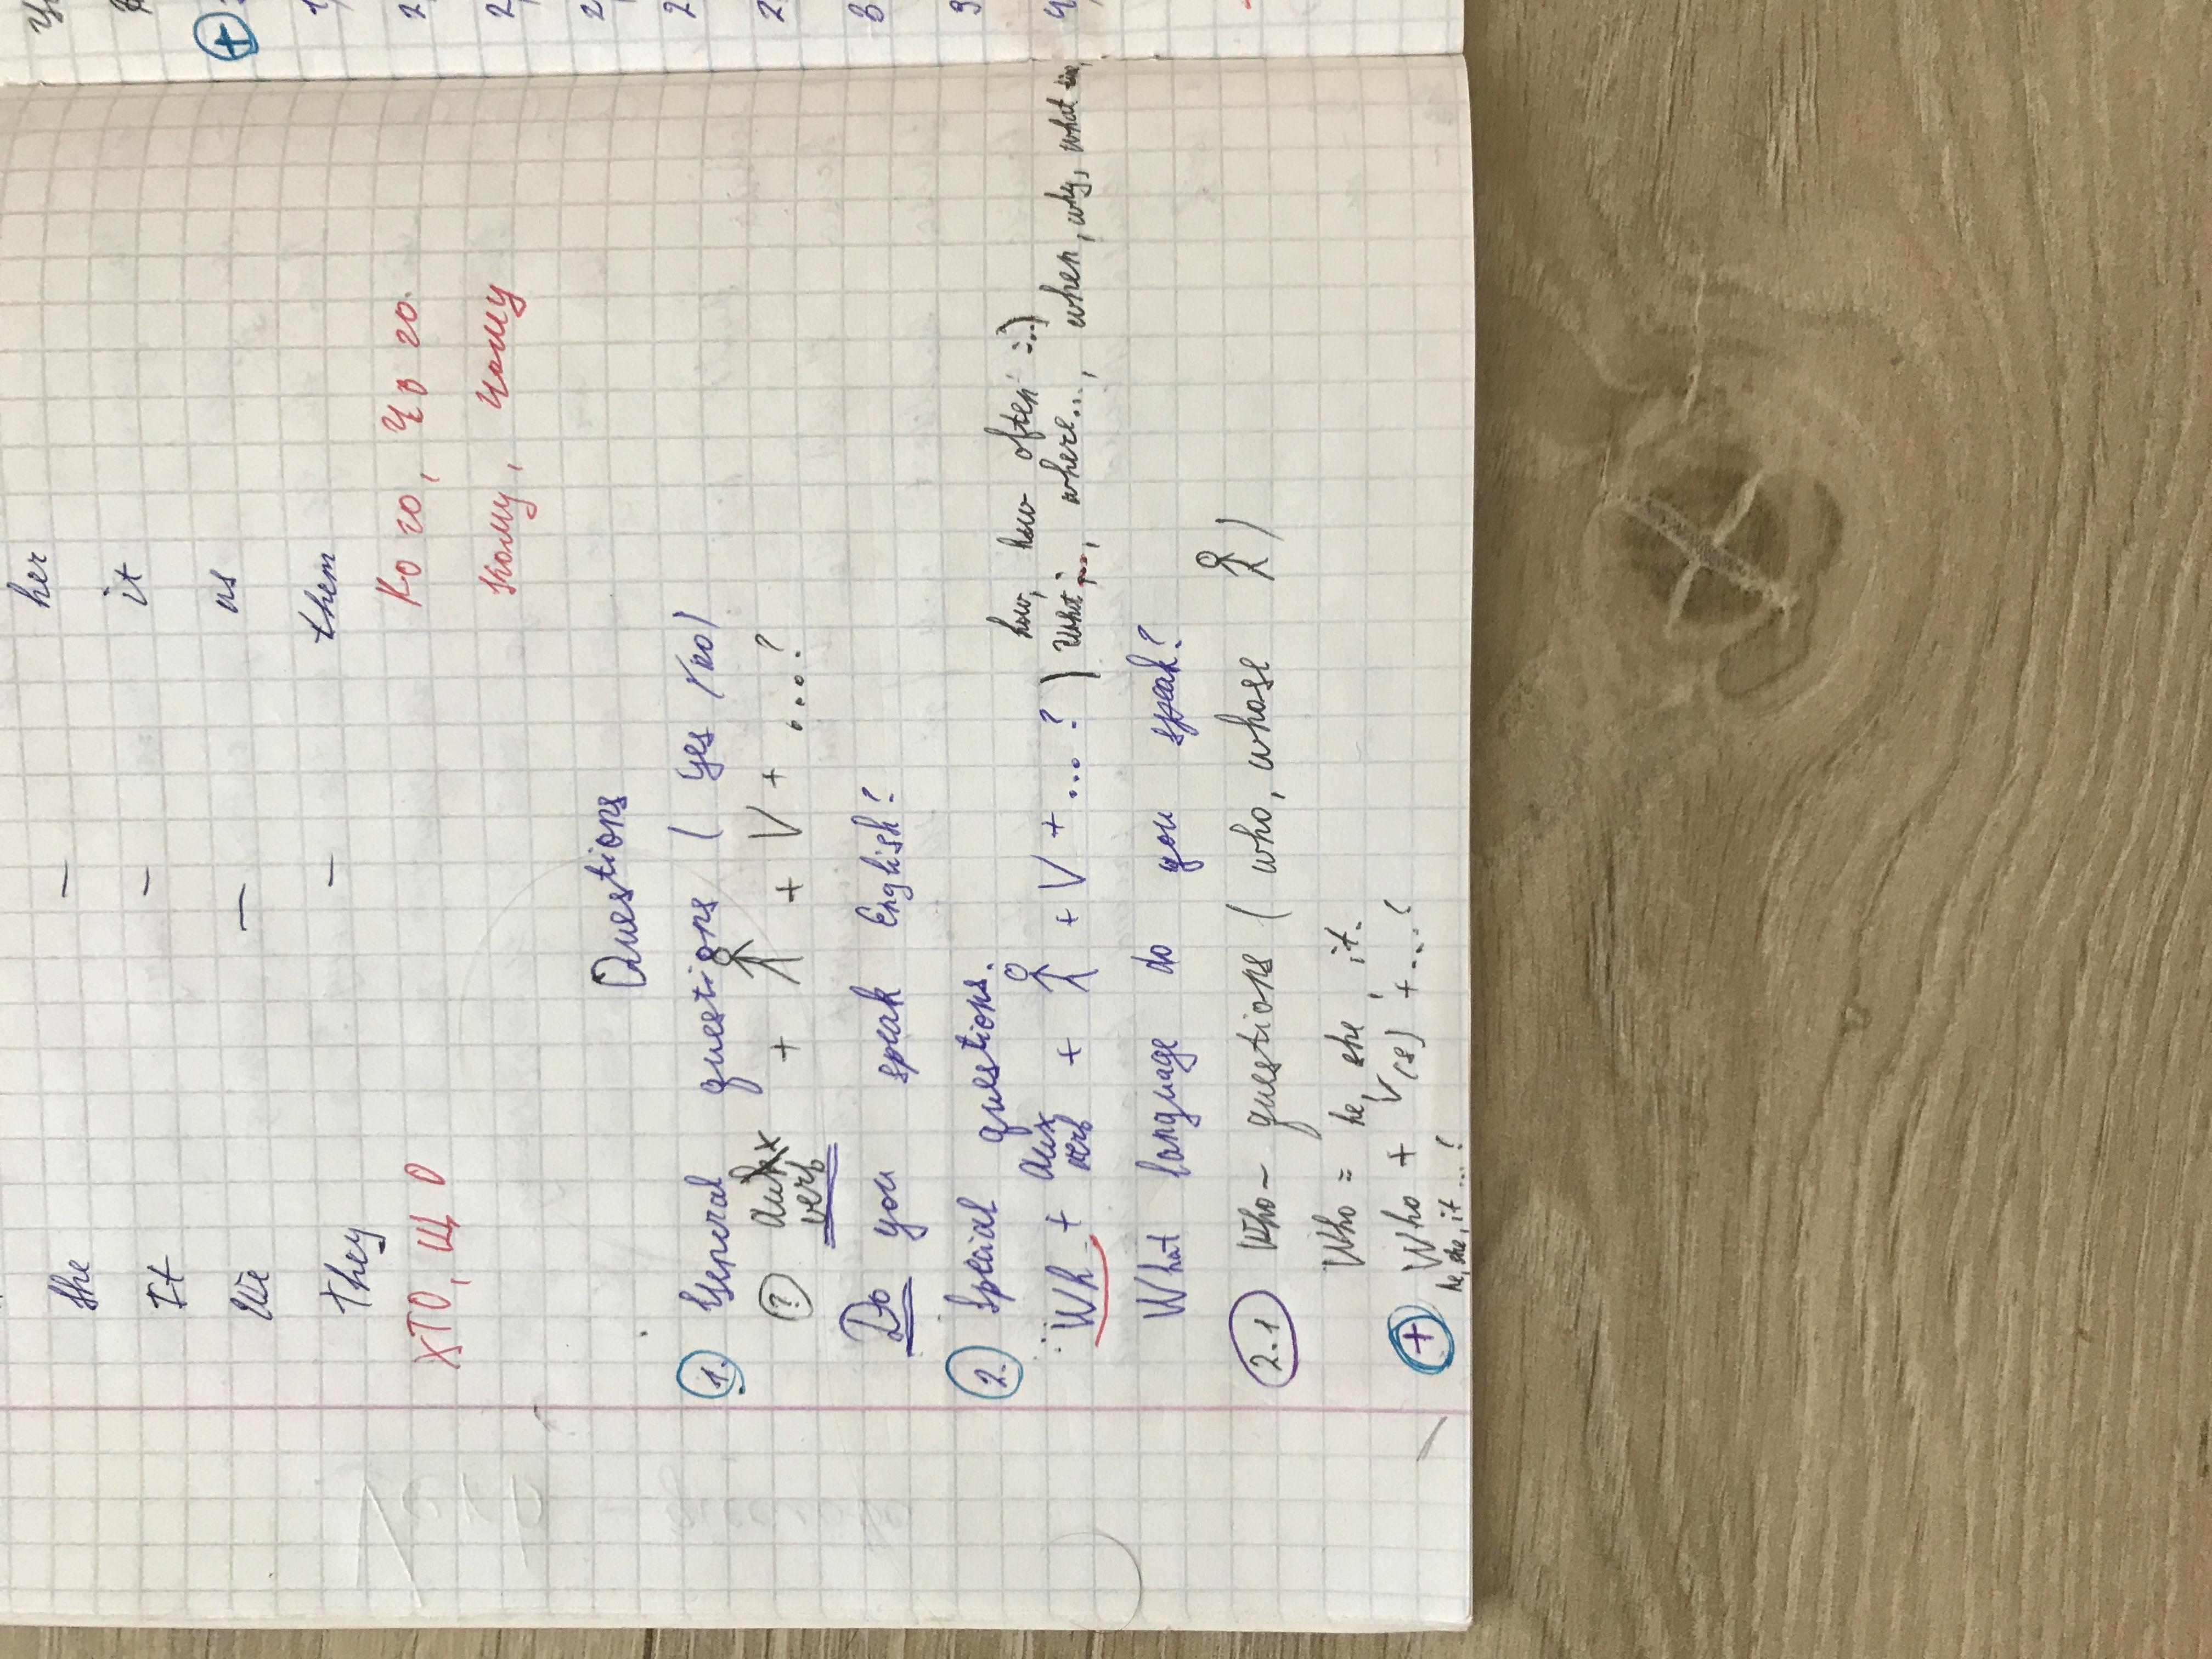 she — her
It — it
we — us
they — them
ХТО, ЩО Кого, Чого.
кому, чому
Questions
1. General questions (yes/no)
? aux verb + + V + ....?
Do you speak English?
2. Special questions.
how, how often ...)
Wh + aux verb + + V + ...?) what..., where..., when, why, what time,
What language do you speak?
2.1 Who - questions (who, whose )
Who = he, she, it.
+ Who + V(s) + ...?
he, she, it ...?